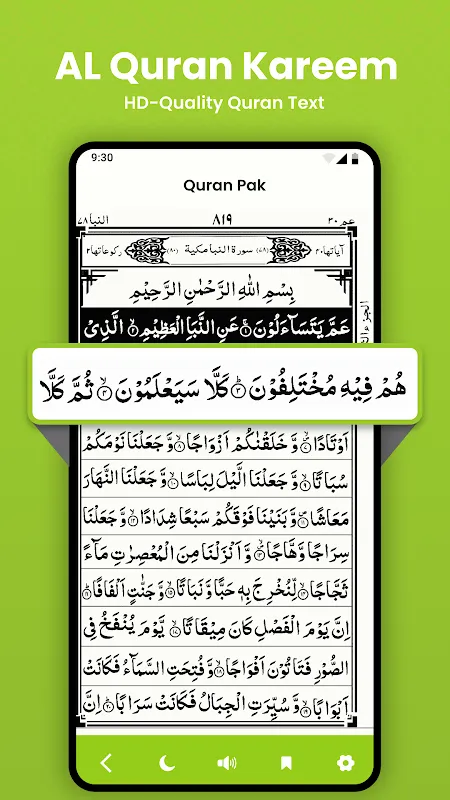 AL Quran Kareem
HD-Quality Quran Text
9:30
Quran Pak
عم ٣٠ ٨١٩ النبا ٧٨
آیاتها ٤٠ (٧٨) سورة النبا مكية (٨٠) ركوعاتها ٢
بِسْمِ اللّٰهِ الرَّحْمٰنِ الرَّحِيْمِ
عَمَّ يَتَسَآءَلُوْنَ ۝١ عَنِ النَّبَاِ الْعَظِيْمِ ۝٢ الَّذِىْ
هُمْ فِيْهِ مُخْتَلِفُوْنَ ۝٣ كَلَّا سَيَعْلَمُوْنَ ۝٤ ثُمَّ كَلَّا
اَوْتَادًا ۝٧ وَّخَلَقْنٰكُمْ اَزْوَاجًا ۝٨ وَّجَعَلْنَا نَوْمَكُمْ
سُبَاتًا ۝٩ وَّجَعَلْنَا الَّيْلَ لِبَاسًا ۝١٠ وَّجَعَلْنَا النَّهَارَ
مَعَاشًا ۝١١ وَّبَنَيْنَا فَوْقَكُمْ سَبْعًا شِدَادًا ۝١٢ وَّجَعَلْنَا
سِرَاجًا وَّهَّاجًا ۝١٣ وَّاَنْزَلْنَا مِنَ الْمُعْصِرٰتِ مَآءً
ثَجَّاجًا ۝١٤ لِّنُخْرِجَ بِهٖ حَبًّا وَّنَبَاتًا ۝١٥ وَّجَنّٰتٍ اَلْفَافًا ۝١٦
اِنَّ يَوْمَ الْفَصْلِ كَانَ مِيْقَاتًا ۝١٧ يَّوْمَ يُنْفَخُ فِى
الصُّوْرِ فَتَاْتُوْنَ اَفْوَاجًا ۝١٨ وَّفُتِحَتِ السَّمَآءُ فَكَانَتْ
اَبْوَابًا ۝١٩ وَّسُيِّرَتِ الْجِبَالُ فَكَانَتْ سَرَابًا ۝٢٠ اِنَّ